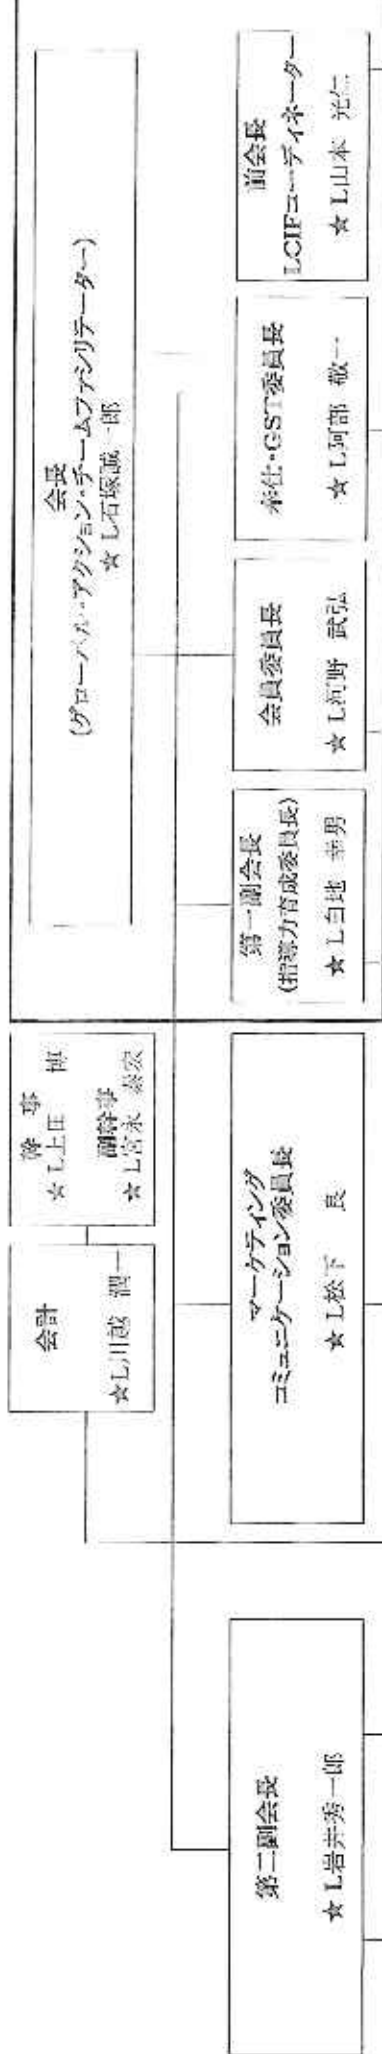 会長
(グローバル・アクション・チームファシリテーター)
★ L石塚誠一郎
幹 事
★L上庄 博
副幹事
★L宮永 泰宏
会計
★L川越 潤一
前会長
LCIFコーディネーター
★ L山本 光仁
奉仕・GST委員長
★ L阿部 敬一
会員委員長
★ L河野 武弘
第一副会長
(指導力育成委員長)
★ L白地 幸男
マーケティング
コミュニケーション委員長
★ L松下 良
第二副会長
★ L岩井秀一郎